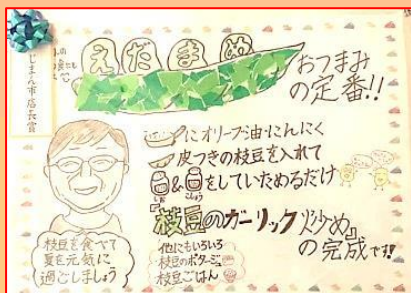 じまん市店長賞
えだまめ
おつまみ
の定番!!
にオリーブ油・にんにく
皮つきの枝豆を入れて
&をしていためるだけ
しお
こしょう
『枝豆のガーリック炒め』
の完成です!!
枝豆を食べて
夏を元気に
過ごしましょう
他にもいろいろ
枝豆のポタージュ
枝豆ごはん